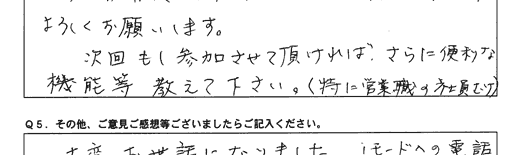 よろしくお願いします。
次回もし参加させて頂ければ、さらに便利な
機能等教えて下さい。(特に営業職の社員むけ)
Q5．その他、ご意見ご感想等ございましたらご記入ください。
大変お世話になりました。iモードへの電話